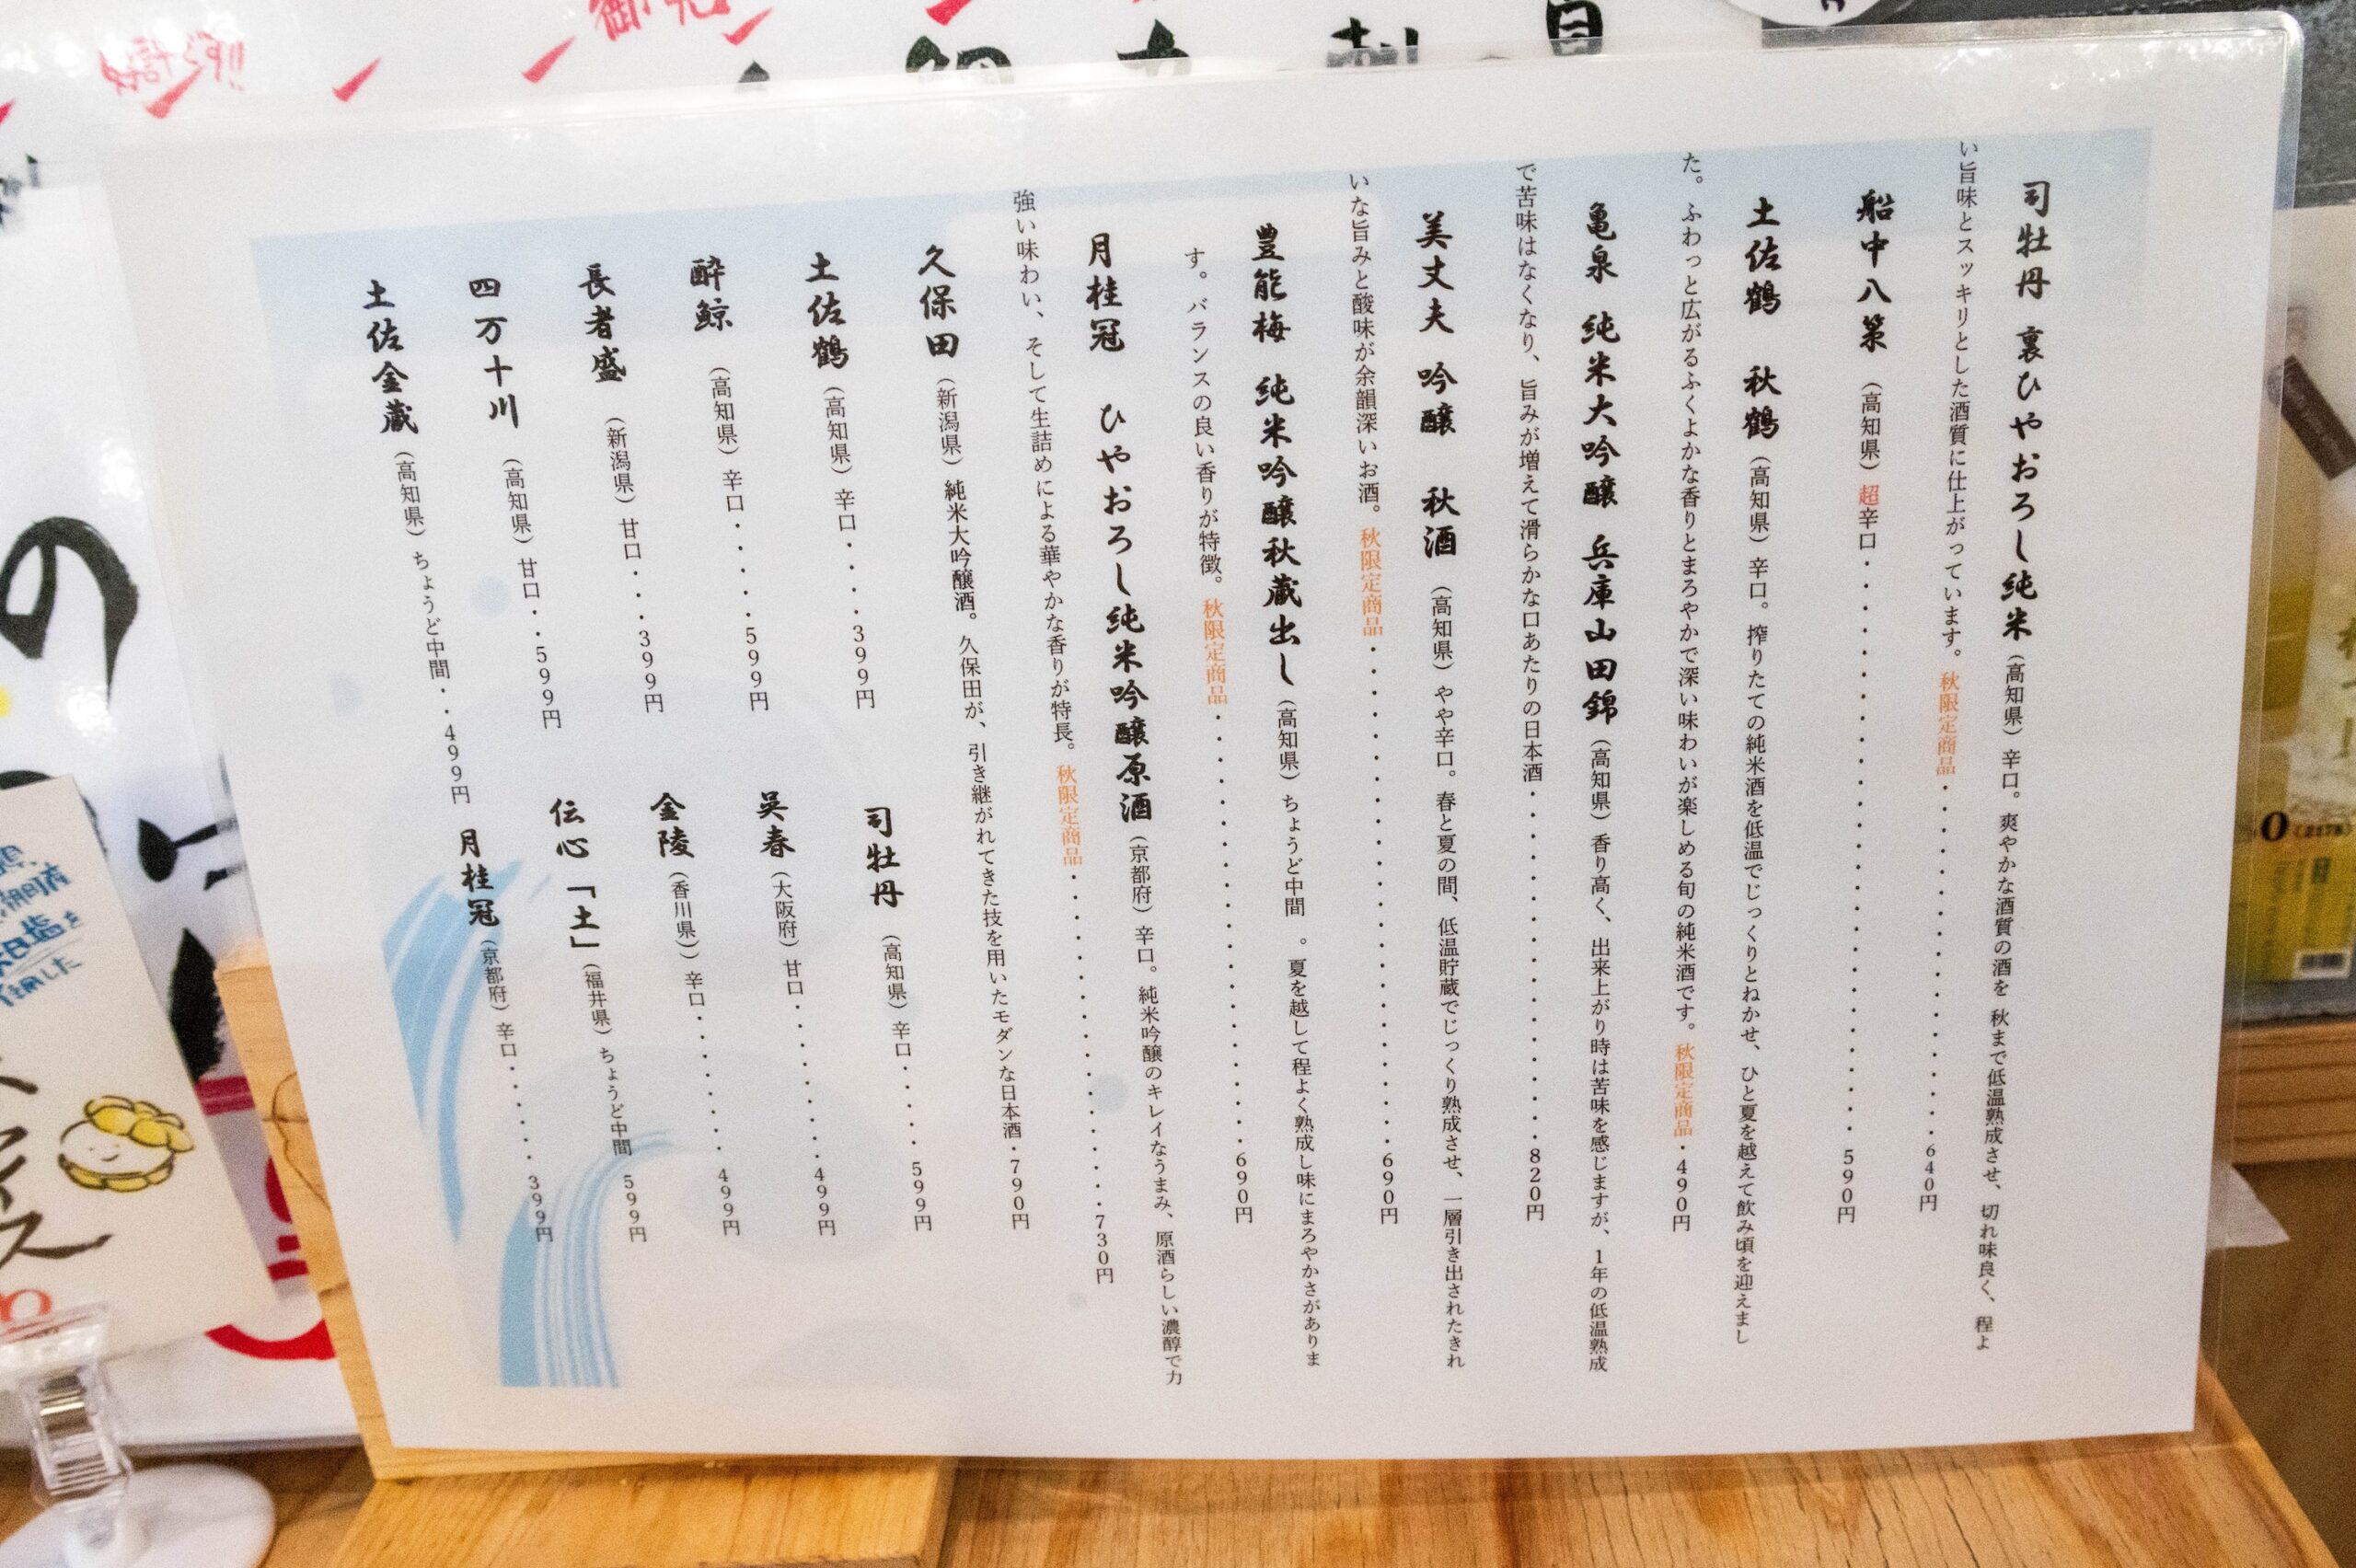 司牡丹 裏ひやおろし純米（高知県）辛口。爽やかな酒質の酒を 秋まで低温熟成させ、切れ味良く、程よ
い旨味とスッキリとした酒質に仕上がっています。秋限定商品・・・・・・・・・・・・・・・640円
船中八策（高知県）超辛口・・・・・・・・・・・・・・・・・・・・・・・590円
土佐鶴 秋鶴（高知県）辛口。搾りたての純米酒を低温でじっくりとねかせ、ひと夏を越えて飲み頃を迎えまし
た。ふわっと広がるふくよかな香りとまろやかで深い味わいが楽しめる旬の純米酒です。秋限定商品・490円
亀泉 純米大吟醸 兵庫山田錦（高知県）香り高く、出来上がり時は苦味を感じますが、1年の低温熟成
で苦味はなくなり、旨みが増えて滑らかな口あたりの日本酒・・・・・・・・・・・・・・・820円
美丈夫 吟醸 秋酒（高知県）やや辛口。春と夏の間、低温貯蔵でじっくり熟成させ、一層引き出されたきれ
いな旨みと酸味が余韻深いお酒。秋限定商品・・・・・・・・・・・・・・・・・・・・・690円
豊能梅 純米吟醸秋蔵出し（高知県）ちょうど中間 。夏を越して程よく熟成し味にまろやかさがありま
す。バランスの良い香りが特徴。秋限定商品・・・・・・・・・・・・・・・・・・690円
月桂冠 ひやおろし純米吟醸原酒（京都府）辛口。純米吟醸のキレイなうまみ、原酒らしい濃醇で力
強い味わい、そして生詰めによる華やかな香りが特長。秋限定商品・・・・・・・・・・・・・・730円
久保田（新潟県）純米大吟醸酒。久保田が、引き継がれてきた技を用いたモダンな日本酒・790円
土佐鶴（高知県）辛口・・・・・399円
酔鯨（高知県）辛口・・・・・・599円
長者盛（新潟県）甘口・・・399円
四万十川（高知県）甘口・・599円
土佐金蔵（高知県）ちょうど中間・・499円
司牡丹（高知県）辛口・・・・・599円
呉春（大阪府）甘口・・・・・・・・499円
金陵（香川県）辛口・・・・・・・499円
伝心「土」（福井県）ちょうど中間 599円
月桂冠（京都府）辛口・・・・・・399円